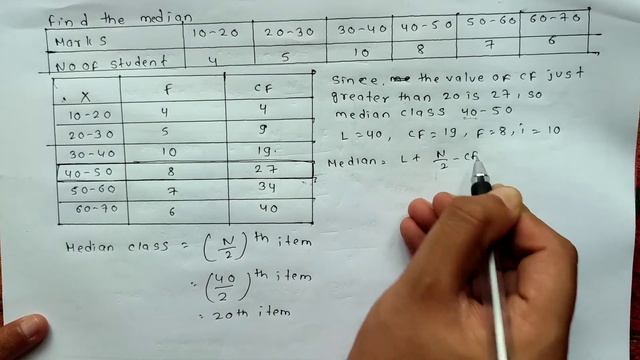 Find the median
Marks 10-20 20-30 30-40 40-50 50-60 60-70
No of student 4 5 10 8 7 6
X F CF
10-20 4 4
20-30 5 9
30-40 10 19
40-50 8 27
50-60 7 34
60-70 6 40
Median class = (N/2)th item
= (40/2)th item
= 20th item
Since, the value of CF just
greater than 20 is 27, so
median class 40-50
L=40, CF=19, F=8, i=10
Median = L+ N/2 - CF